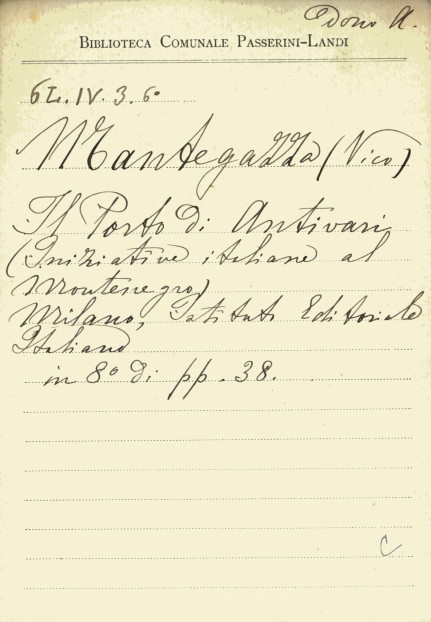 dono A.
Biblioteca Comunale Passerini-Landi
6L.IV.3.6°
Mantegazza (Vico)
Il Porto di Antivari
(Iniziative italiane al
Montenegro)
Milano, Istituto Editoriale
Italiano
in 8° di pp. 38.
C